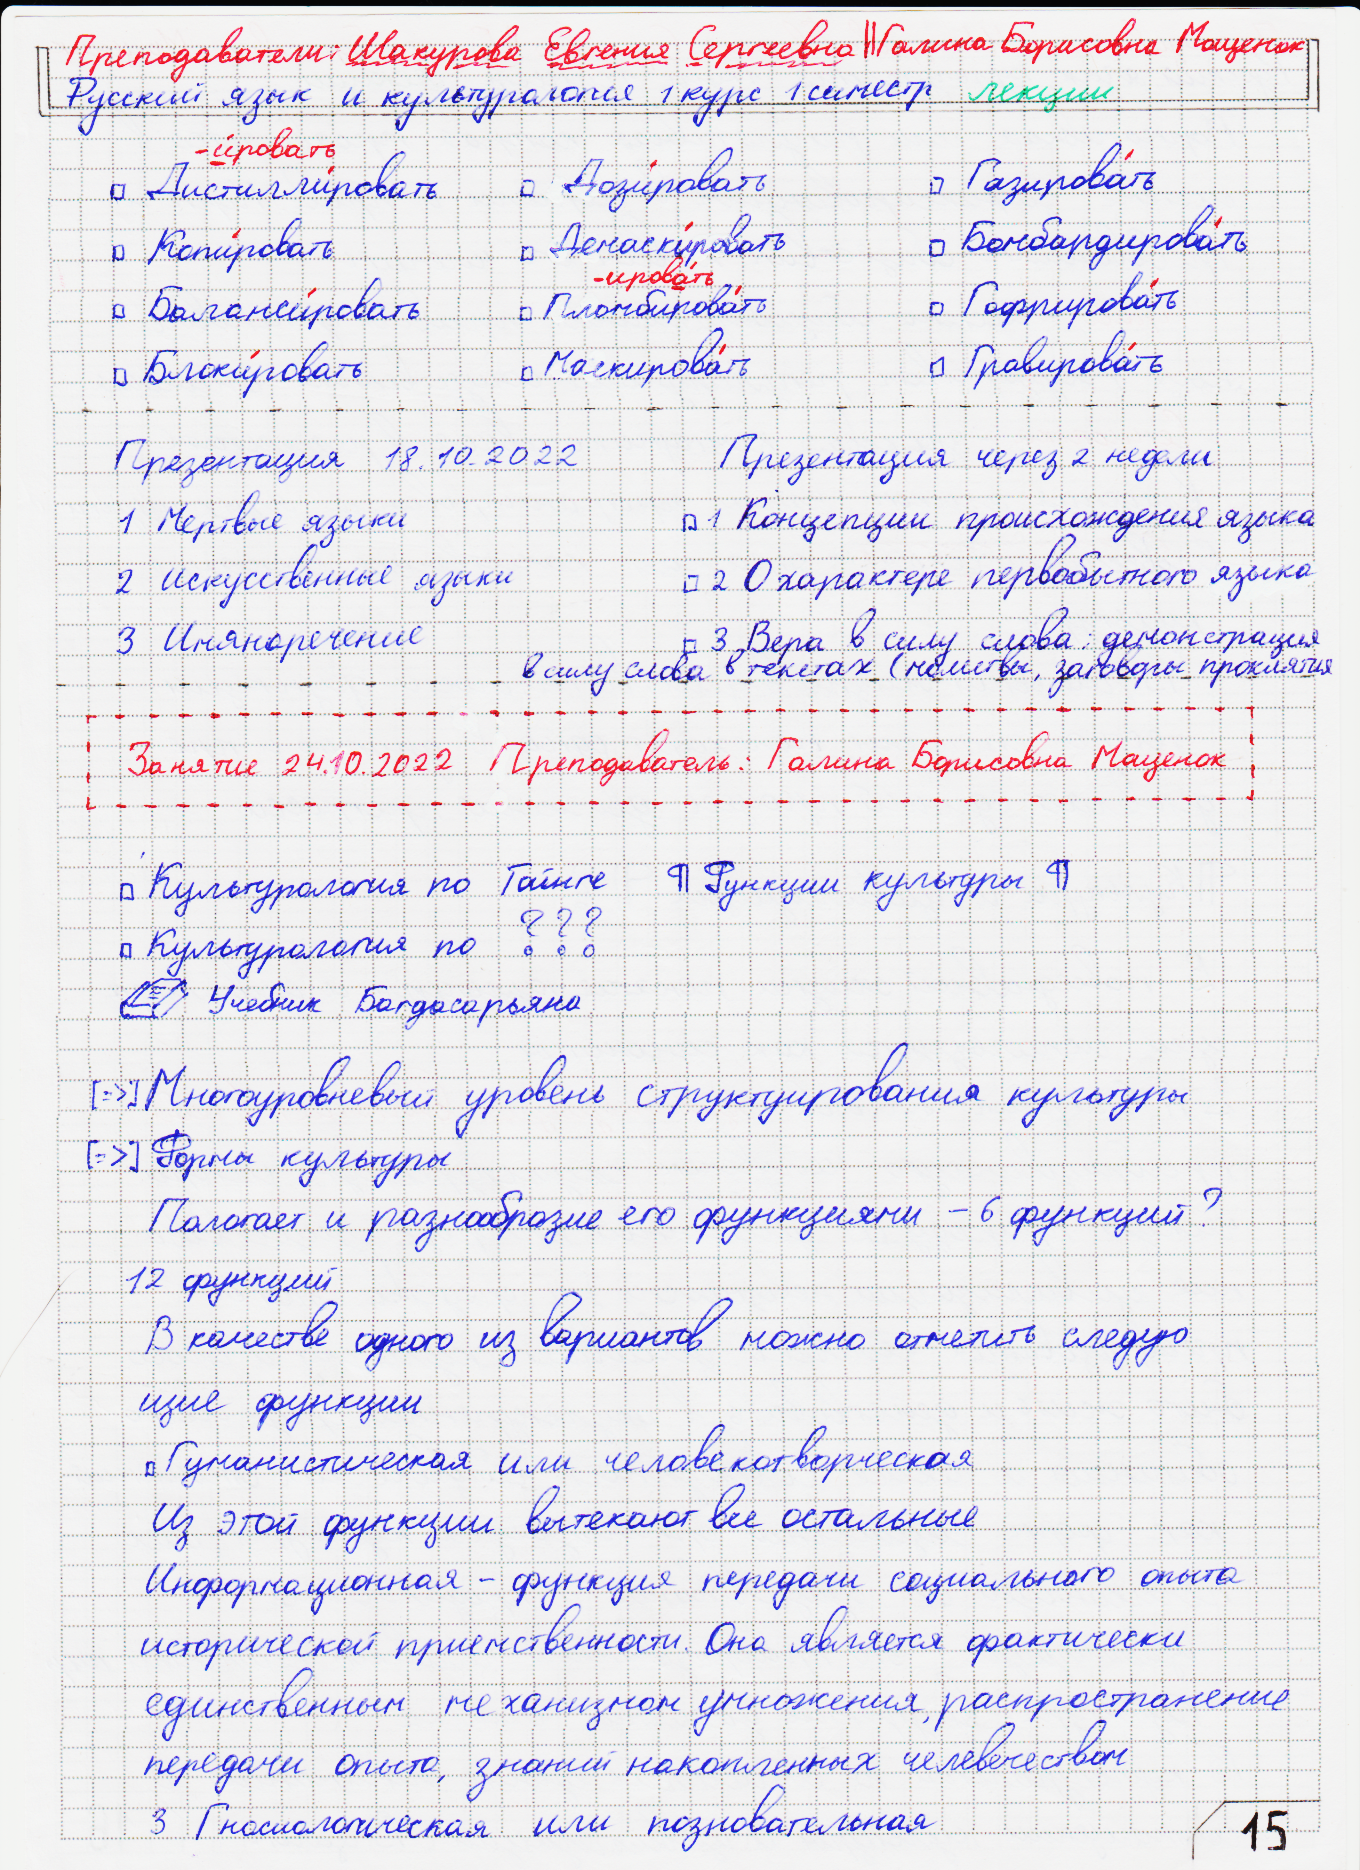 Преподаватели: Шакурова Евгения Сергеевна || Галина Борисовна Маценок
Русский язык и культурология 1 курс 1 семестр лекции
-и́ровать
Дистилли́ровать Дози́ровать Газирова́ть
Копи́ровать Демаски́ровать Бомбардирова́ть
-ирова́ть
Баланси́ровать Пломбирова́ть Гофрирова́ть
Блоки́ровать Маскирова́ть Гравирова́ть
Презентация 18.10.2022 Презентация через 2 недели
1 Мертвые языки 1 Концепции происхождения языка
2 Искусственные языки 2 О характере первобытного языка
3 Имянаречение 3 Вера в силу слова: демонстрация
в силу слова в текстах (молитвы, заговоры, проклятия
Занятие 24.10.2022 Преподаватель: Галина Борисовна Маценок
Культурология по Тайнге ¶ Функции культуры ¶
Культурология по ???
Учебник Багдасарьяна
[=>] Многоуровневый уровень структурирования культуры
[=>] Формы культуры
Полагает и разнообразие его функциями – 6 функций?
12 функций
В качестве одного из вариантов можно отметить следую
щие функции
Гуманистическая или человекотворческая
Из этой функции вытекают все остальные
Информационная – функция передачи социального опыта
исторической приемственности. Она является фактически
единственным механизмом умножения, распространение
передачи опыта, знаний накопленных человечеством
3 Гносиологическая или познавательная
15